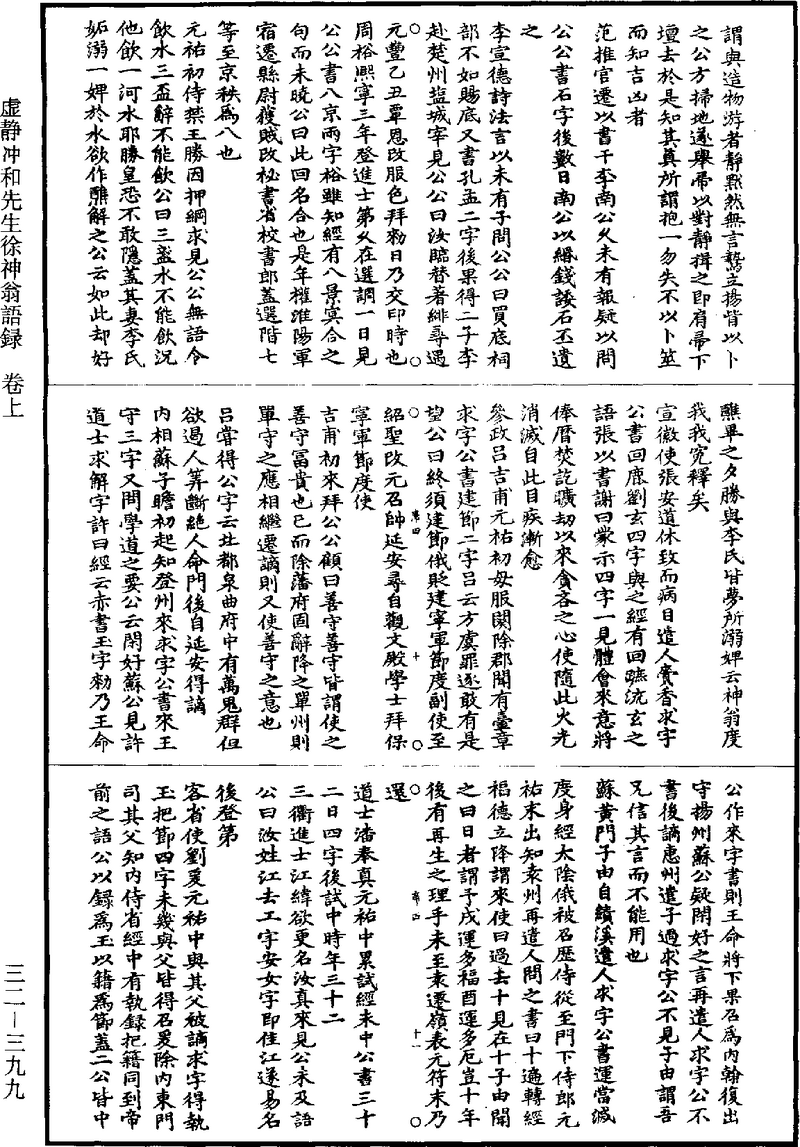 虛靜冲和先生徐神翁語録　卷上
三二—三九九
謂與造物游者靜黙然無言驚立揚眥以卜
之公方掃地遂舉帚以對靜揖之即肩帚下
壇去於是知其真所謂抱一勿失不以卜筮
而知吉凶者
范推官遷以書干李南公久未有報疑以問
公公書石字後數日南公以緡錢諉石丕遺
之
李宣德詩法言以未有子問公公曰買底祠
部不如賜底又書孔孟二字後果得二子李
赴楚州盐城宰見公公曰汝臨替著緋尋遇
元豐乙丑覃恩改服色拜勑日乃交印時也
周裕熈寧三年登進士第久在選調一日見
公公書八京兩字裕雖知經有八景㝠合之
句而未曉公曰此回名合也是年權淮陽軍
宿遷縣尉獲賊改秘書省校書郎蓋選階七
等至京秩爲八也
元祐初侍禁王勝因押綱求見公公無語令
飲水三盃辭不能飲公曰三盃水不能飲況
他飲一河水耶勝皇恐不敢隱蓋其妻李氏
妬溺一婢於水欲作醮解之公云如此却好
醮畢之夕勝與李氏皆夢所溺婢云神翁度
我我寃釋矣
宣徽使張安道休致而病目遣人賫香求字
公書回鹿劉玄四字與之經有回飈流玄之
語張以書謝曰蒙示四字一見體會來意將
俸曆焚訖曠劫以來貪吝之心使隨此火光
消滅自此目疾漸愈
參政吕吉甫元祐初毋服闋除郡聞有臺章
求字公書建節二字吕云方虞罪逐敢有是
望公曰終須建節俄貶建寧軍節度副使至
紹聖改元召帥延安尋自觀文殿學士拜保
寧軍節度使
吉甫初來拜公公顧曰善守善守皆謂使之
善守富貴也已而除藩府固辭降之單州則
單守之應相繼遷謫則又使善守之意也
吕嘗得公字云北都泉曲府中有萬鬼群但
欲遏人筭斷絕人命門後自延安得謫
内相蘇子瞻初起知登州來求字公書來王
守三字又問學道之要公云閑好蘇公見許
道士求解字許曰經云赤書玉字勑乃王命
公作來字書則王命將下果召爲内翰復出
守揚州蘇公疑閑好之言再遣人求字公不
書後謫惠州遣子過求字公不見子由謂吾
兄信其言而不能用也
蘇黄門子由自績溪遣人求字公書運當滅
度身經太陰俄被召歷侍從至門下侍郎元
祐末出知袁州再遣人問之書曰十過轉經
福德立降謂來使曰過去十見在十子由聞
之曰日者謂予戌運多福酉運多厄豈十年
後有再生之理乎未至袁遷嶺表元符末乃
還
道士潘奉真元祐中累試經未中公書三十
二日四字後試中時年三十二
三衢進士江緯欲更名汝真來見公未及語
公曰汝姓江去工字安女字即佳江遂易名
後登第
客省使劉爰元祐中與其父被謫求字得執
玉把節四字未幾與父皆得召爰除内東門
司其父知内侍省經中有執録把籍同到帝
前之語公以録爲玉以籍爲節蓋二公皆中
席四　十
席四　十一